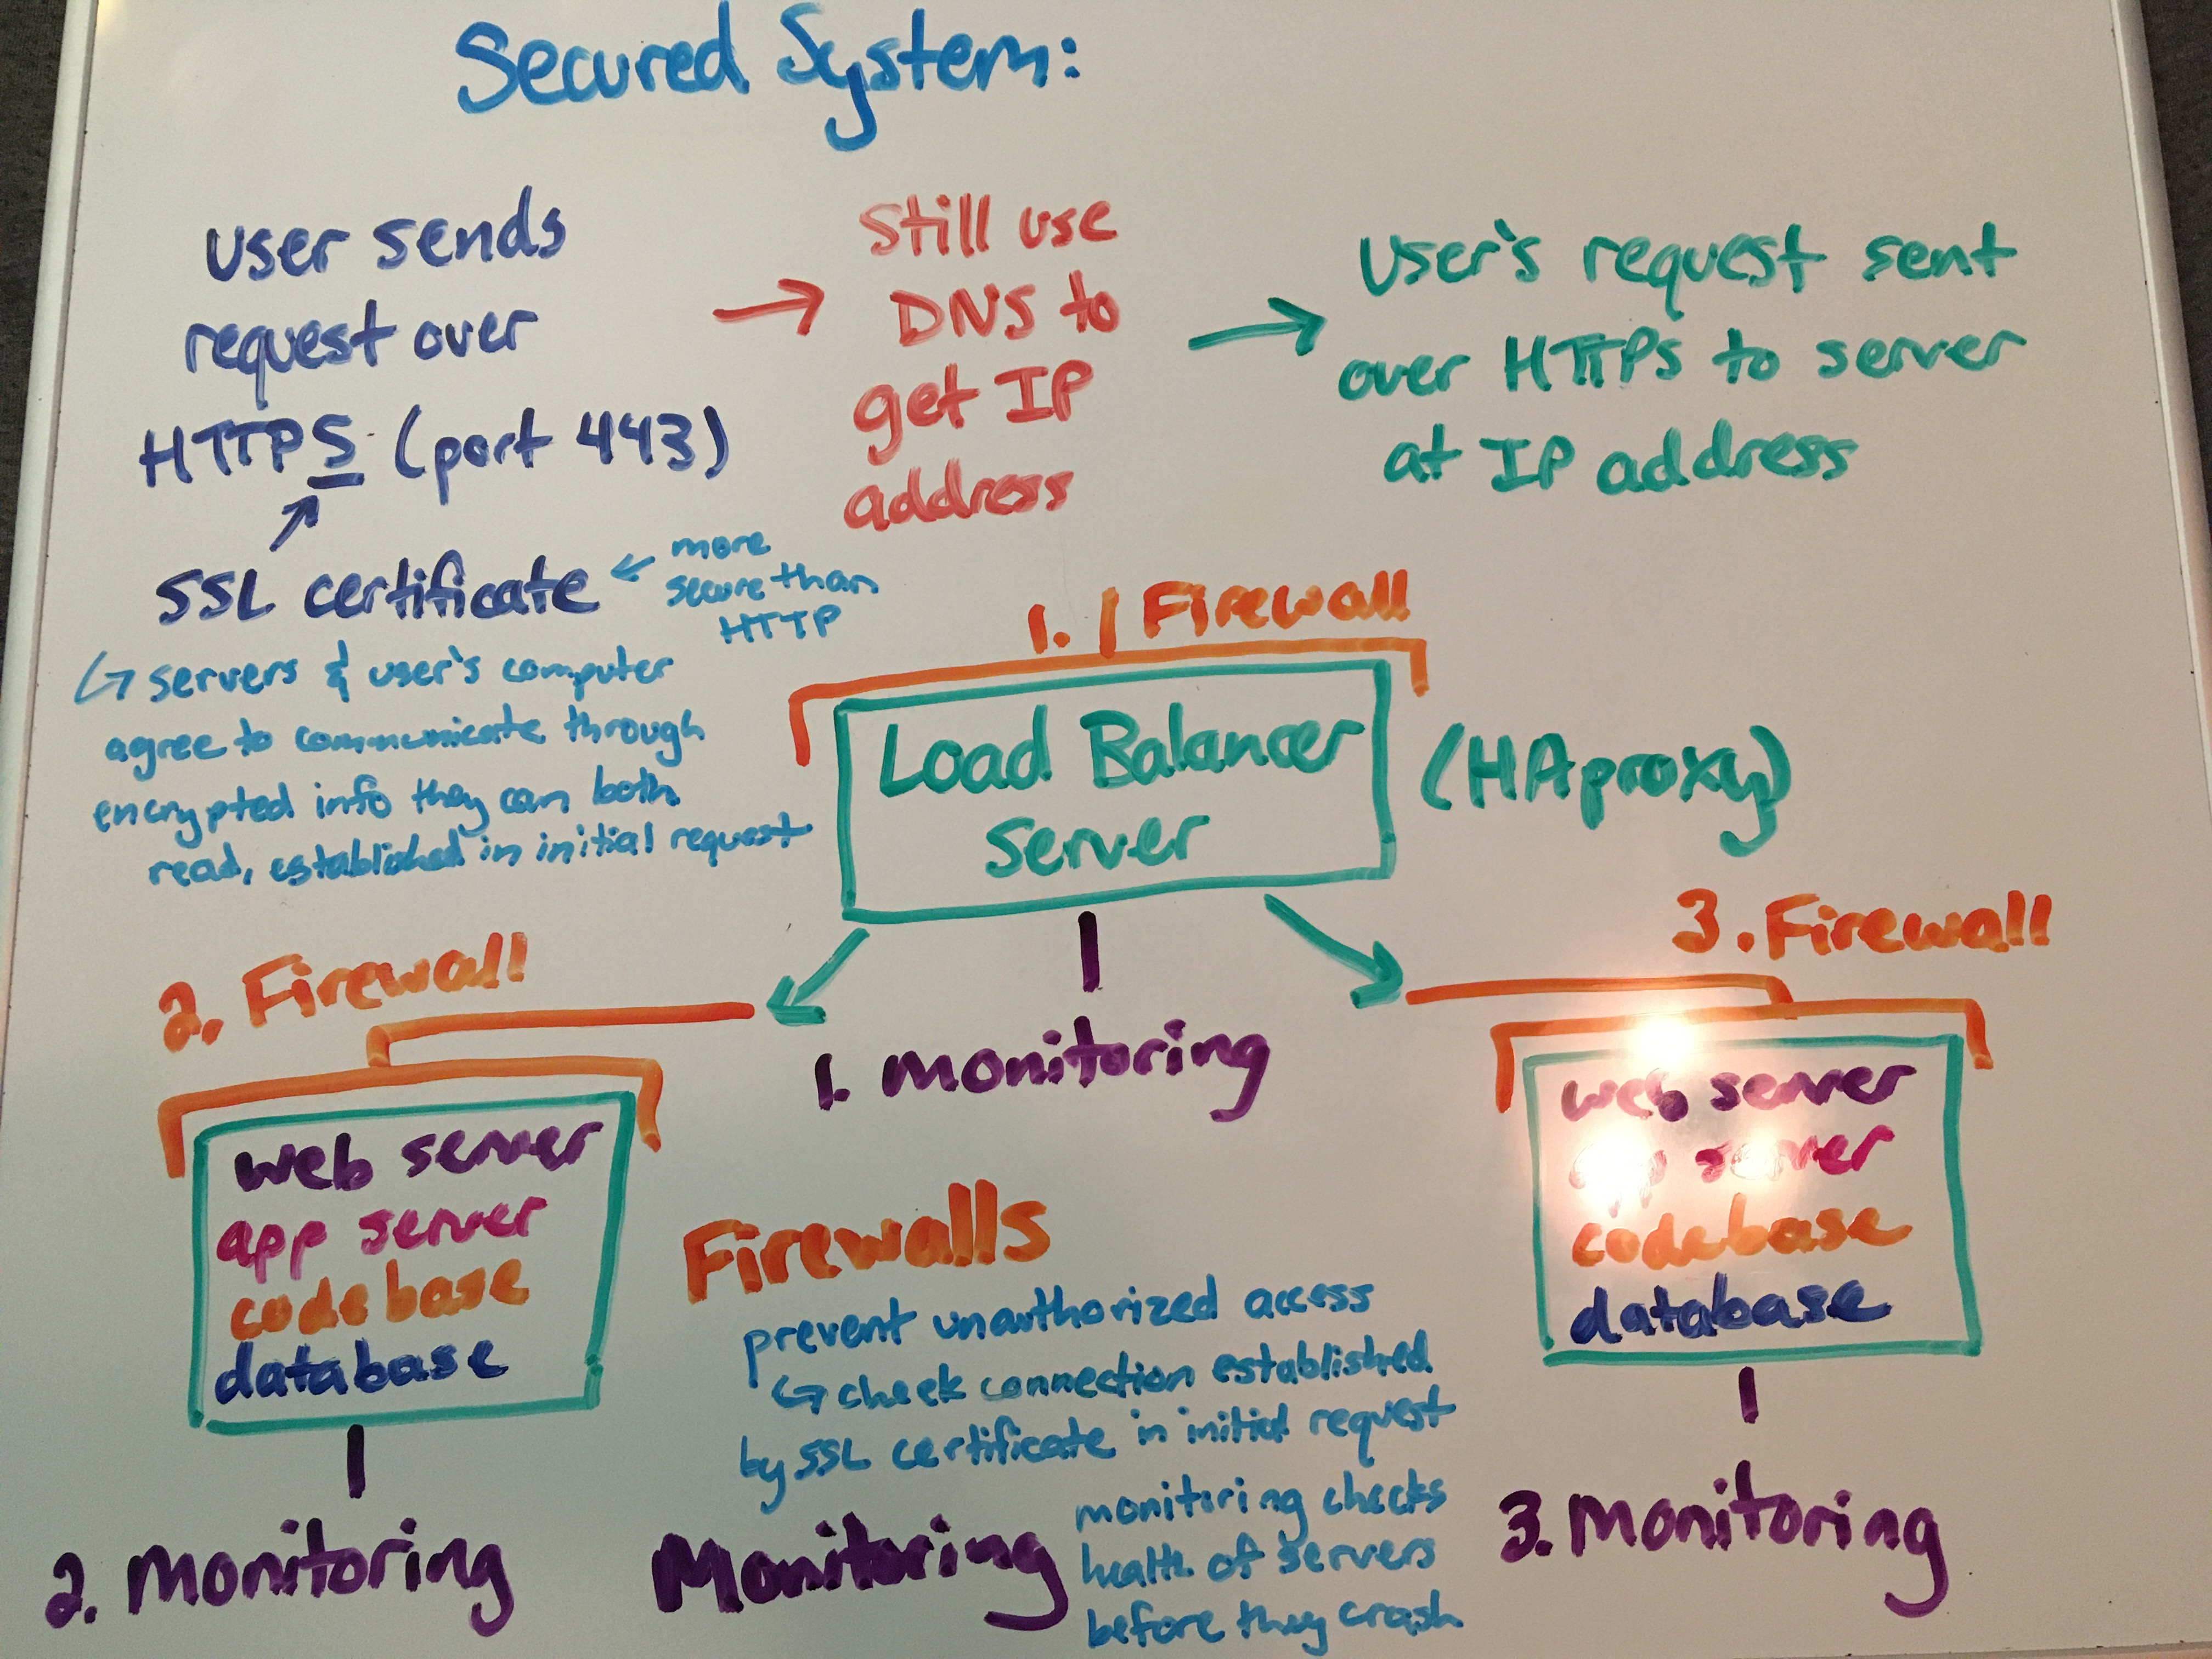 Secured System:
User sends
request over
HTTPS (port 443)
SSL certificate
← more
secure than
HTTP
↳ servers & user's computer
agree to communicate through
encrypted info they can both
read, established in initial request
→ still use
DNS to
get IP
address
→ User's request sent
over HTTPS to server
at IP address
1. Firewall
Load Balancer
Server
(HAproxy)
1. monitoring
2. Firewall
web server
app server
codebase
database
2. monitoring
3. Firewall
web server
server
codebase
database
3. monitoring
Firewalls
prevent unauthorized access
↳ check connection established
by SSL certificate in initial request
Monitoring
monitoring checks
health of servers
before they crash